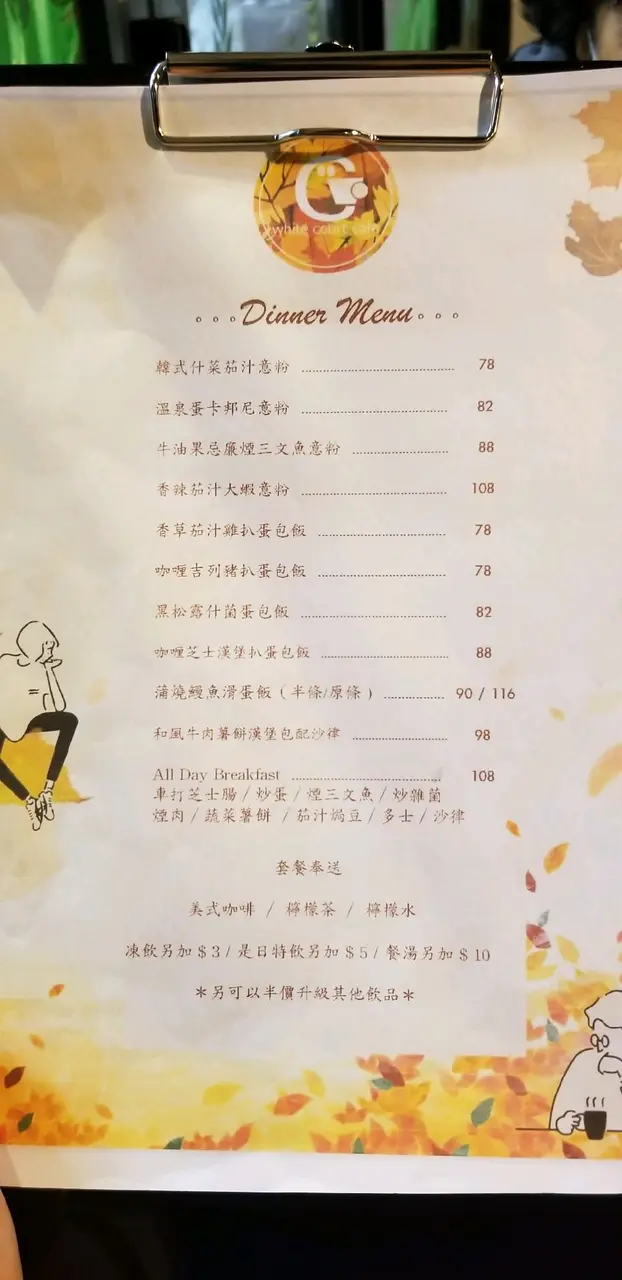 G
white court cafe
Dinner Menu
韓式什菜茄汁意粉 78
溫泉蛋卡邦尼意粉 82
牛油果忌廉煙三文魚意粉 88
香辣茄汁大蝦意粉 108
香草茄汁雞扒蛋包飯 78
咖喱吉列豬扒蛋包飯 78
黑松露什菌蛋包飯 82
咖喱芝士漢堡扒蛋包飯 88
蒲燒鰻魚滑蛋飯 ( 半條/原條 ) 90 / 116
和風牛肉薯餅漢堡包配沙律 98
All Day Breakfast 108
車打芝士腸 / 炒蛋 / 煙三文魚 / 炒雜菌
煙肉 / 蔬菜薯餅 / 茄汁焗豆 / 多士 / 沙律
套餐奉送
美式咖啡 / 檸檬茶 / 檸檬水
凍飲另加 $ 3 / 是日特飲另加 $ 5 / 餐湯另加 $ 10
*另可以半價升級其他飲品*